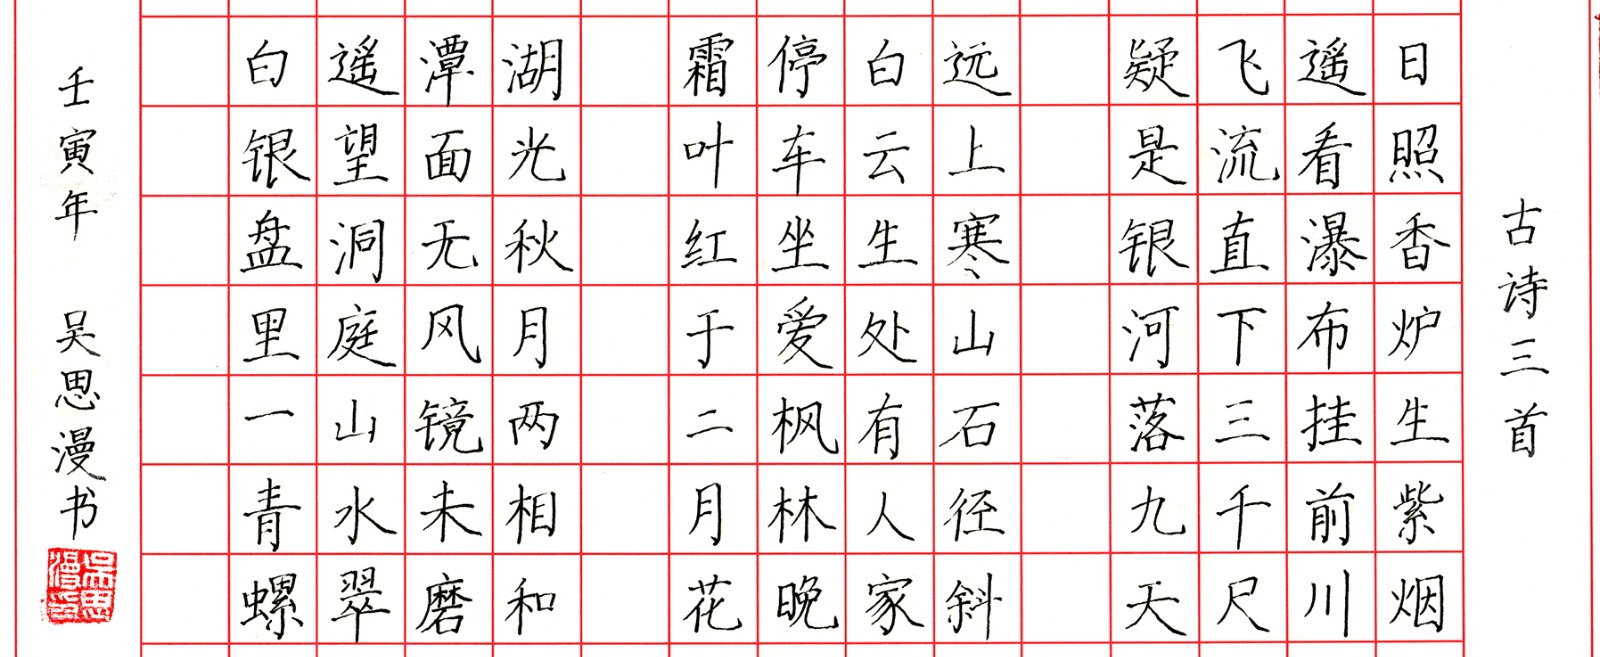 古诗三首
日照香炉生紫烟
遥看瀑布挂前川
飞流直下三千尺
疑是银河落九天
远上寒山石径斜
白云生处有人家
停车坐爱枫林晚
霜叶红于二月花
湖光秋月两相和
潭面无风镜未磨
遥望洞庭山水翠
白银盘里一青螺
壬寅年 吴思漫书
吴思漫印